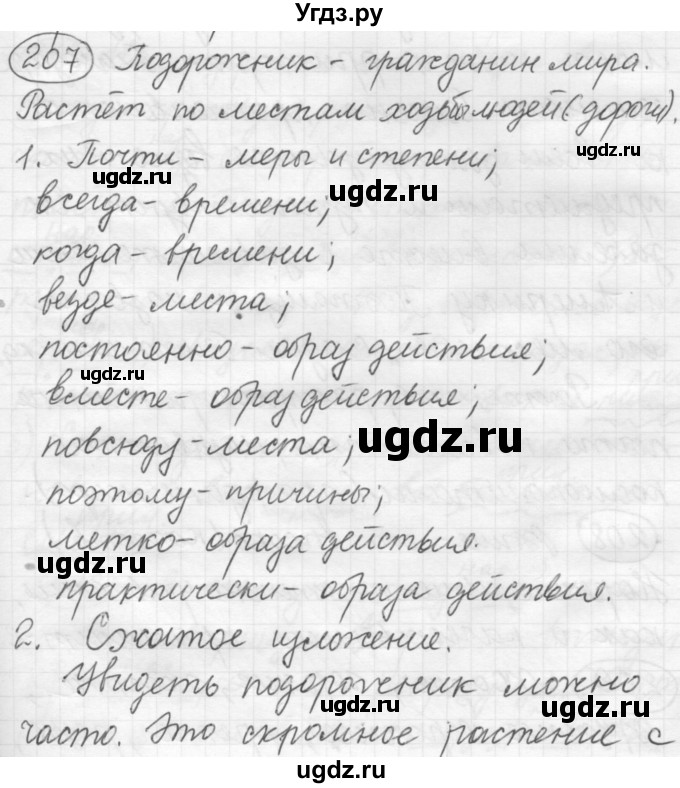 Угдз.ру
207 Подорожник - гражданин мира.
Растёт по местам ходьбы людей (дороги).
ugdz.ru
1. Почти - меры и степени;
ugdz.ru ugdz.ru
всегда - времени;
ugdz.ru
когда - времени;
везде - места;
постоянно - образ действия;
ugdz.ru
вместе - образ действия;
повсюду - места;
ugdz.ru
поэтому - причины;
метко - образа действия.
ugdz.ru
практически - образа действия.
2. Сжатое изложение.
Увидеть подорожник можно
ugdz.ru ugdz.ru
часто. Это скромное растение с
ugdz.ru